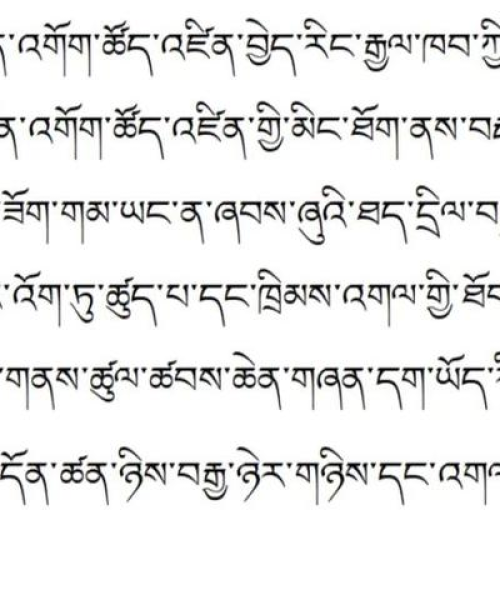 འགོག་ཚོད་འཛིན་བྱེད་རིང་རྒྱལ་ཁབ་ཀྱི
འགོག་ཚོད་འཛིན་གྱི་མིང་ཐོག་ནས་བ
ཟོག་གམ་ཡང་ན་ཞབས་ཞུའི་ཐད་དྲིལ་བ
འོག་ཏུ་ཚུད་པ་དང་ཁྲིམས་འགལ་གྱི་ཐོབ
གནས་ཚུལ་ཚབས་ཆེན་གཞན་དག་ཡོད
དོན་ཚན་ཉིས་བརྒྱ་ཉེར་གཉིས་དང་འགལ